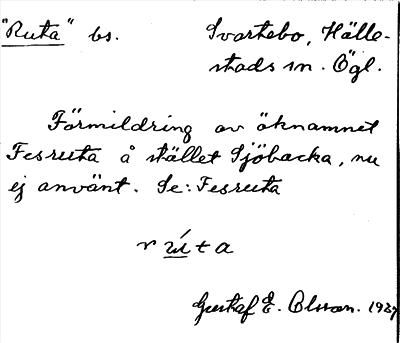 "Ruta" bs. Svartebo, Hälle-
stads sn. Ögl.
Förmildring av öknamnet
Fesruta å stället Sjöbacka, nu
ej använt. Se: Fesruta
rúta
Gustaf E. Olsson. 1937